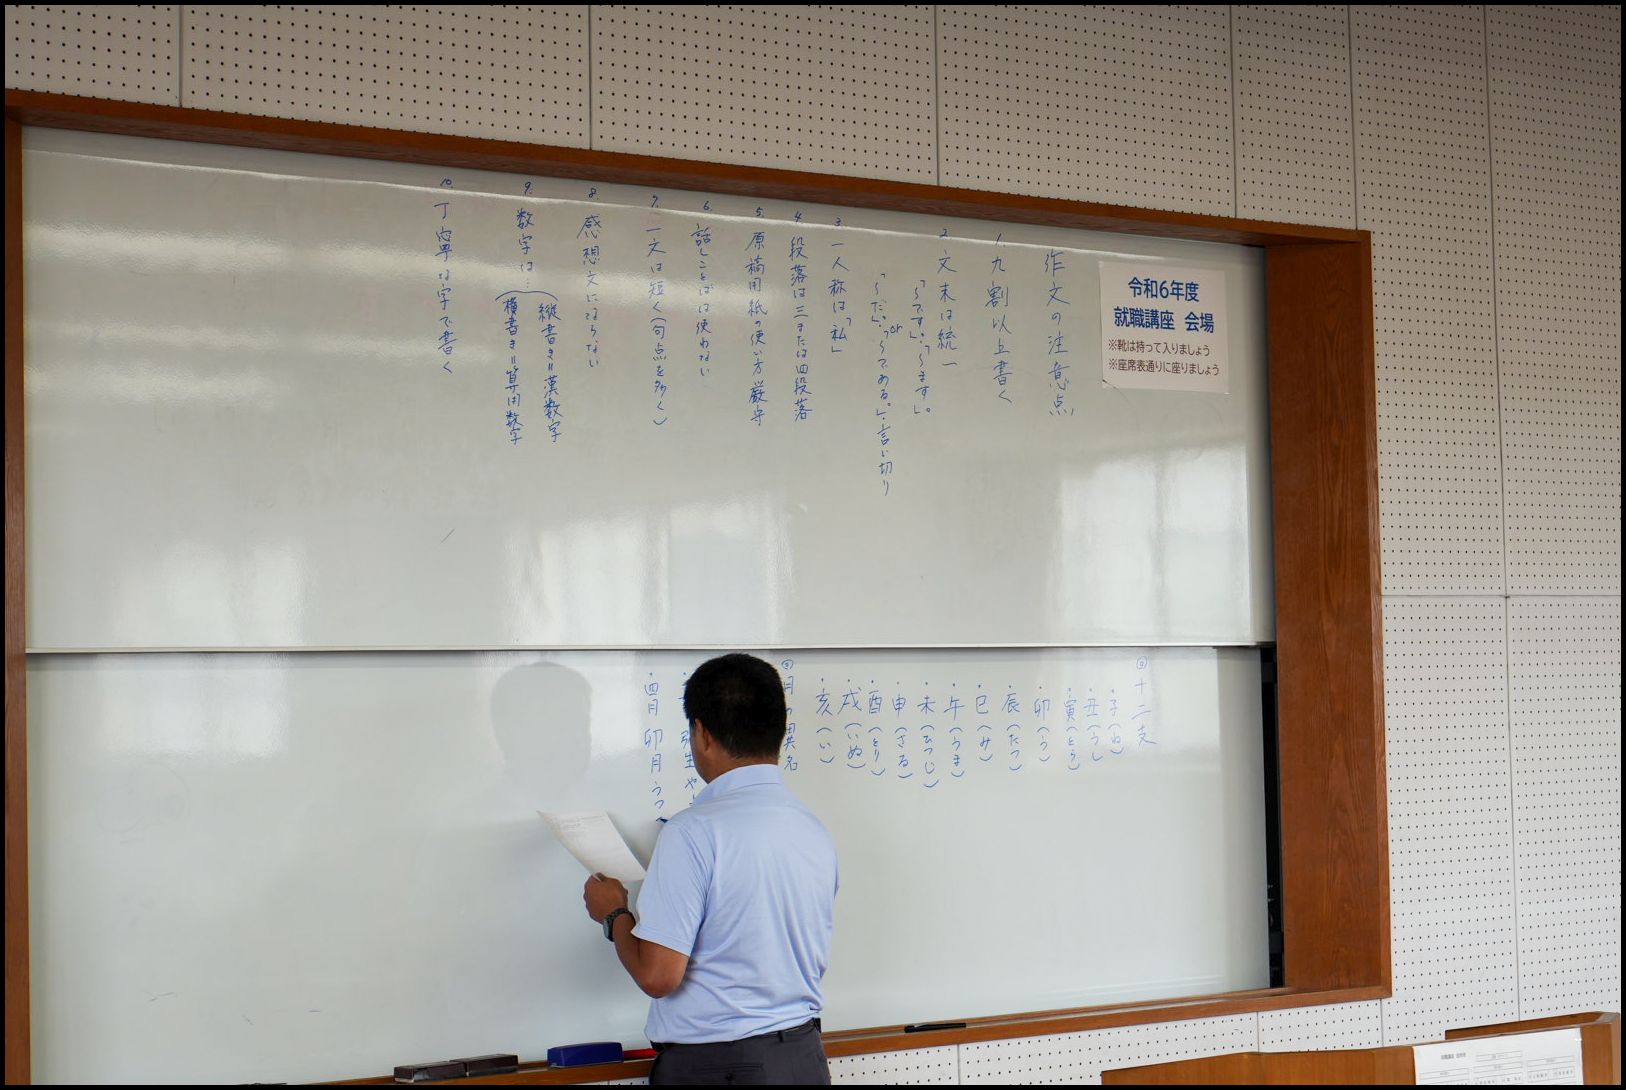 令和6年度
就職講座 会場
※靴は持って入りましょう
※座席表通りに座りましょう
作文の注意点
1. 九割以上書く
2. 文末は統一
「〜です。」「〜ます」。
or
「〜だ。」「〜である。」・言い切り
3. 一人称は「私」
4. 段落は三または四段落
5. 原稿用紙の使い方厳守
6. 話しことばは使わない
7. 一文は短く(句点を多く)
8. 感想文にならない
9. 数字は…
縦書き=漢数字
横書き=算用数字
10. 丁寧な字で書く
◎十二支
・子(ね)
・丑(うし)
・寅(とら)
・卯(う)
・辰(たつ)
・巳(み)
・午(うま)
・未(ひつじ)
・申(さる)
・酉(とり)
・戌(いぬ)
・亥(い)
◎月の異名
弥生 や
・四月 卯月 うつ